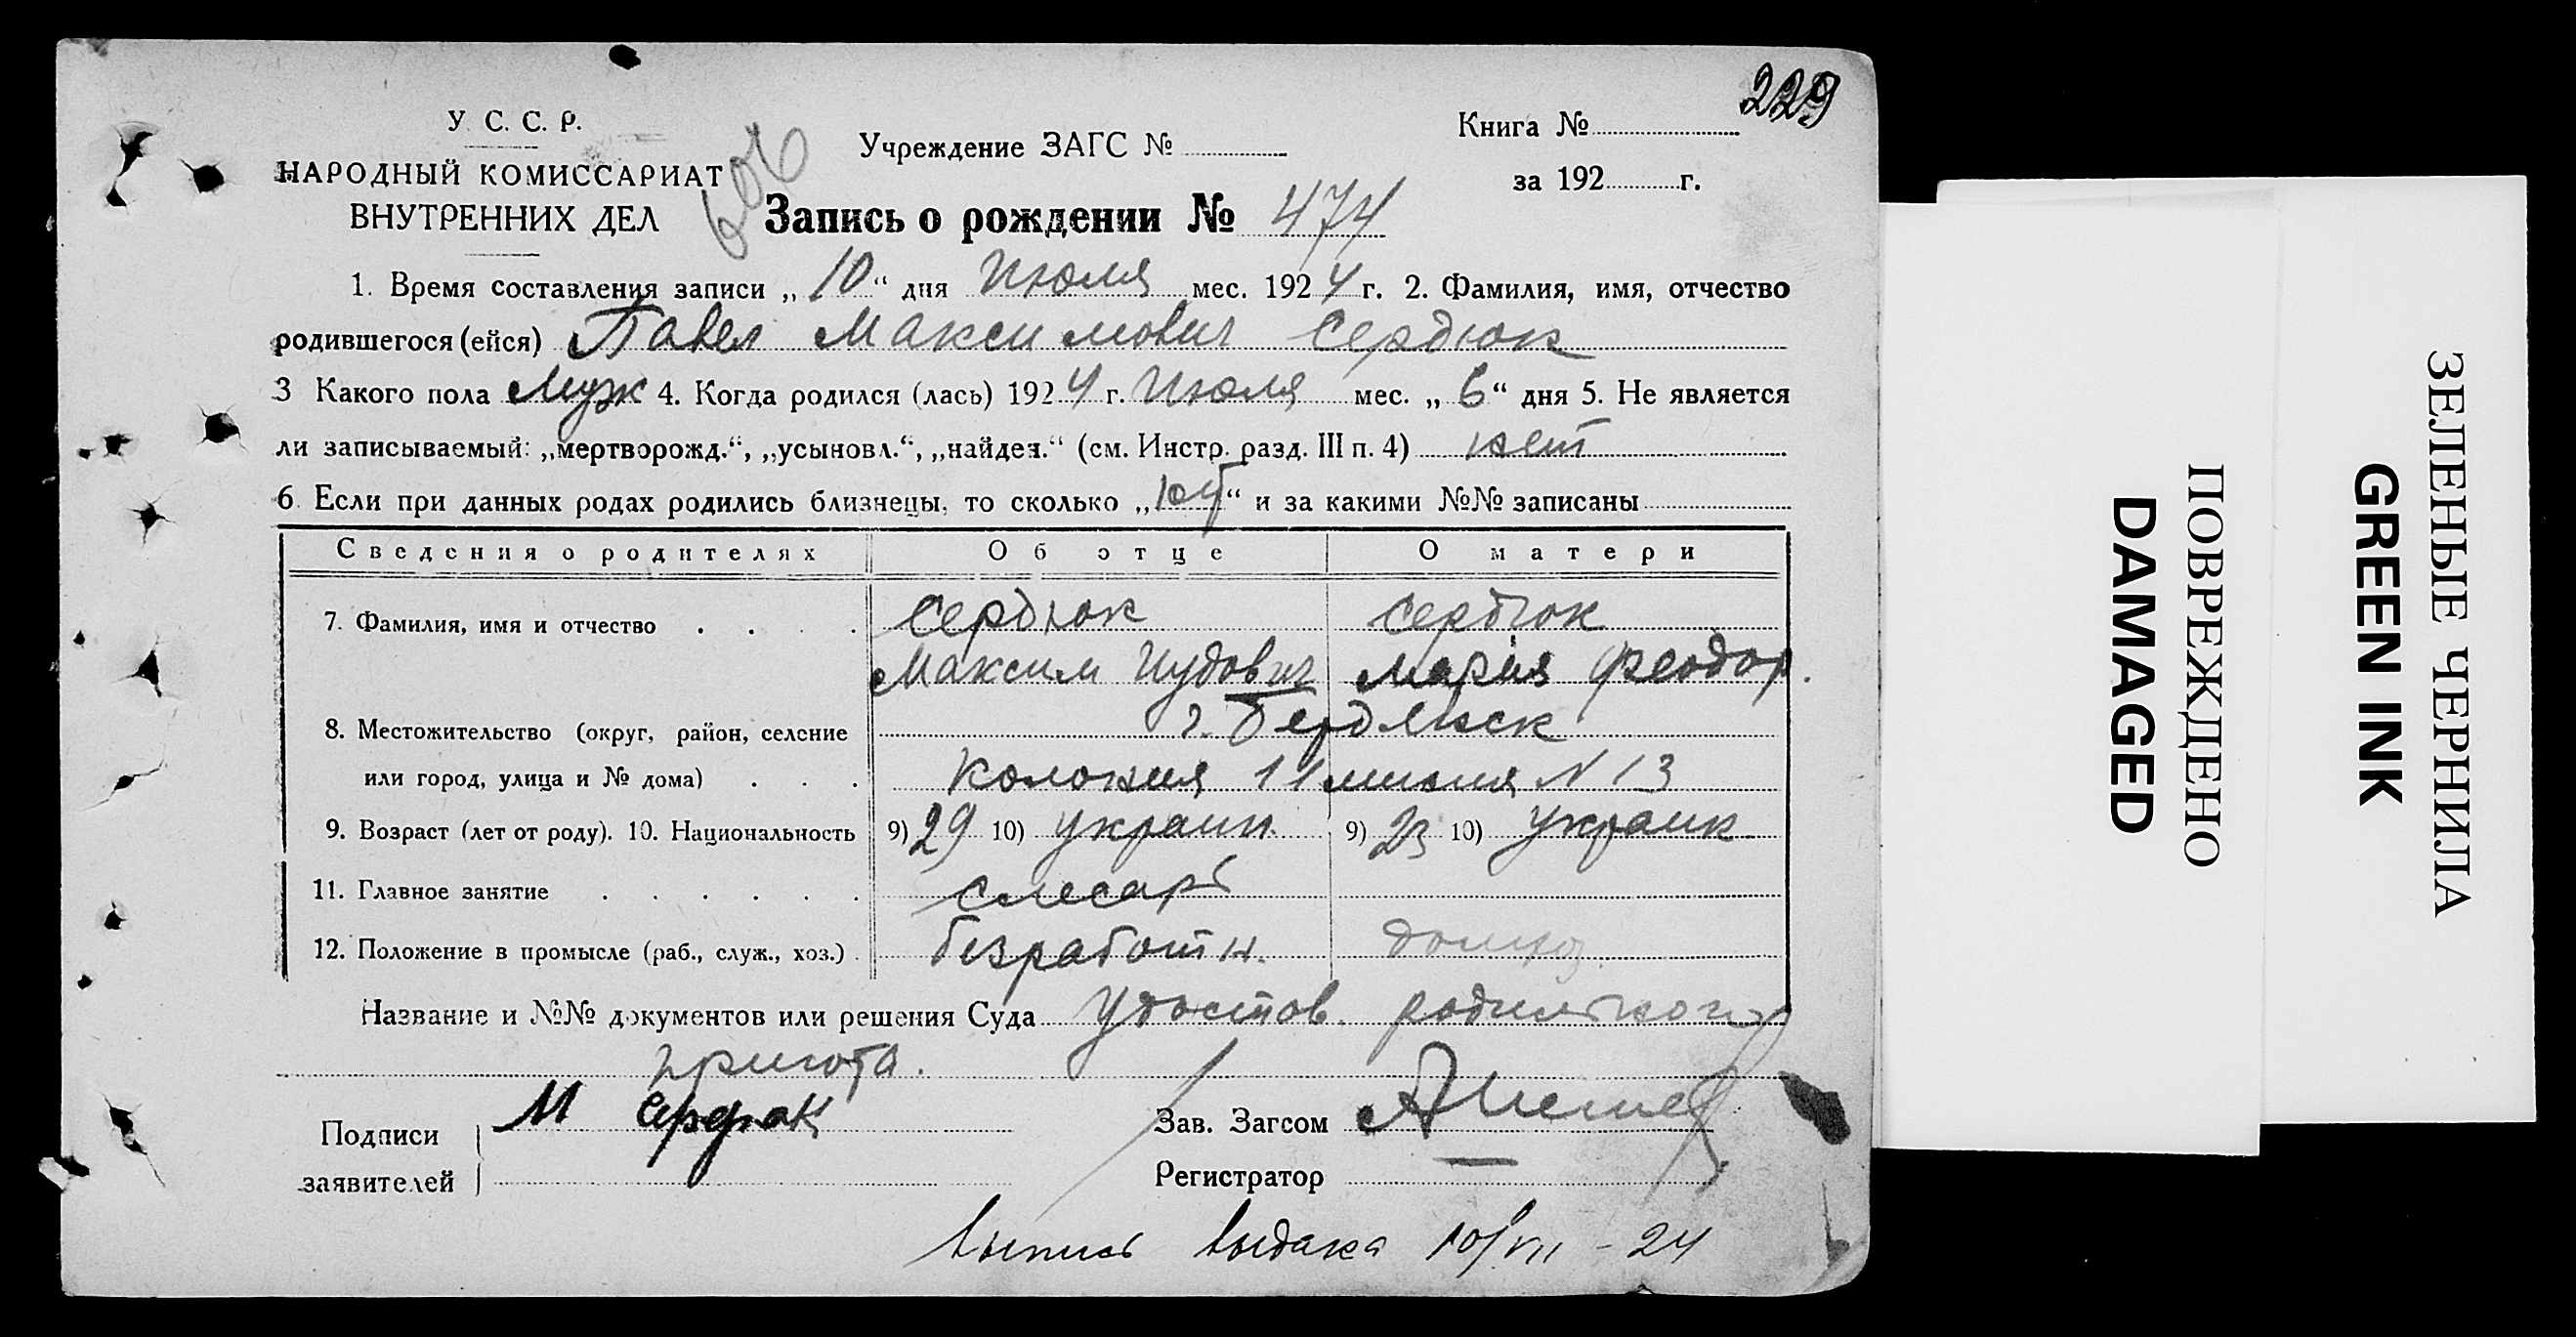 229
У. С. С. Р.
НАРОДНЫЙ КОМИССАРИАТ
ВНУТРЕННИХ ДЕЛ
606
Учреждение ЗАГС №
Книга №
за 192 г.
Запись о рождении № 474
1. Время составления записи „10“ дня Июля мес. 1924 г. 2. Фамилия, имя, отчество
родившегося (ейся) Павел Максимович Сердюк
3 Какого пола Муж 4. Когда родился (лась) 1924 г. Июля мес. „6“ дня 5. Не является
ли записываемый: „мертворожд.“, „усыновл.“, „найден.“ (см. Инстр. разд. III п. 4) нет
6. Если при данных родах родились близнецы, то сколько „ “ и за какими №№ записаны
Сведения о родителях Об отце О матери
7. Фамилия, имя и отчество . . . . Сердюк Сердюк
Максим Иудович Мария Феодор.
8. Местожительство (округ, район, селение г. Бердянск
или город, улица и № дома) . . . Колония 11 линия N 13
9. Возраст (лет от роду). 10. Национальность 9) 29 10) украин. 9) 23 10) украин.
11. Главное занятие . . . . . . слесарь
12. Положение в промысле (раб., служ., хоз.) . безработн. домхоз.
Название и №№ документов или решения Суда Удостов. родильного
приюта.
Подписи
заявителей
М Сердюк
Зав. Загсом
Регистратор
Выпись выдана 10/VII - 24
ЗЕЛЕНЫЕ ЧЕРНИЛА
GREEN INK
ПОВРЕЖДЕНО
DAMAGED